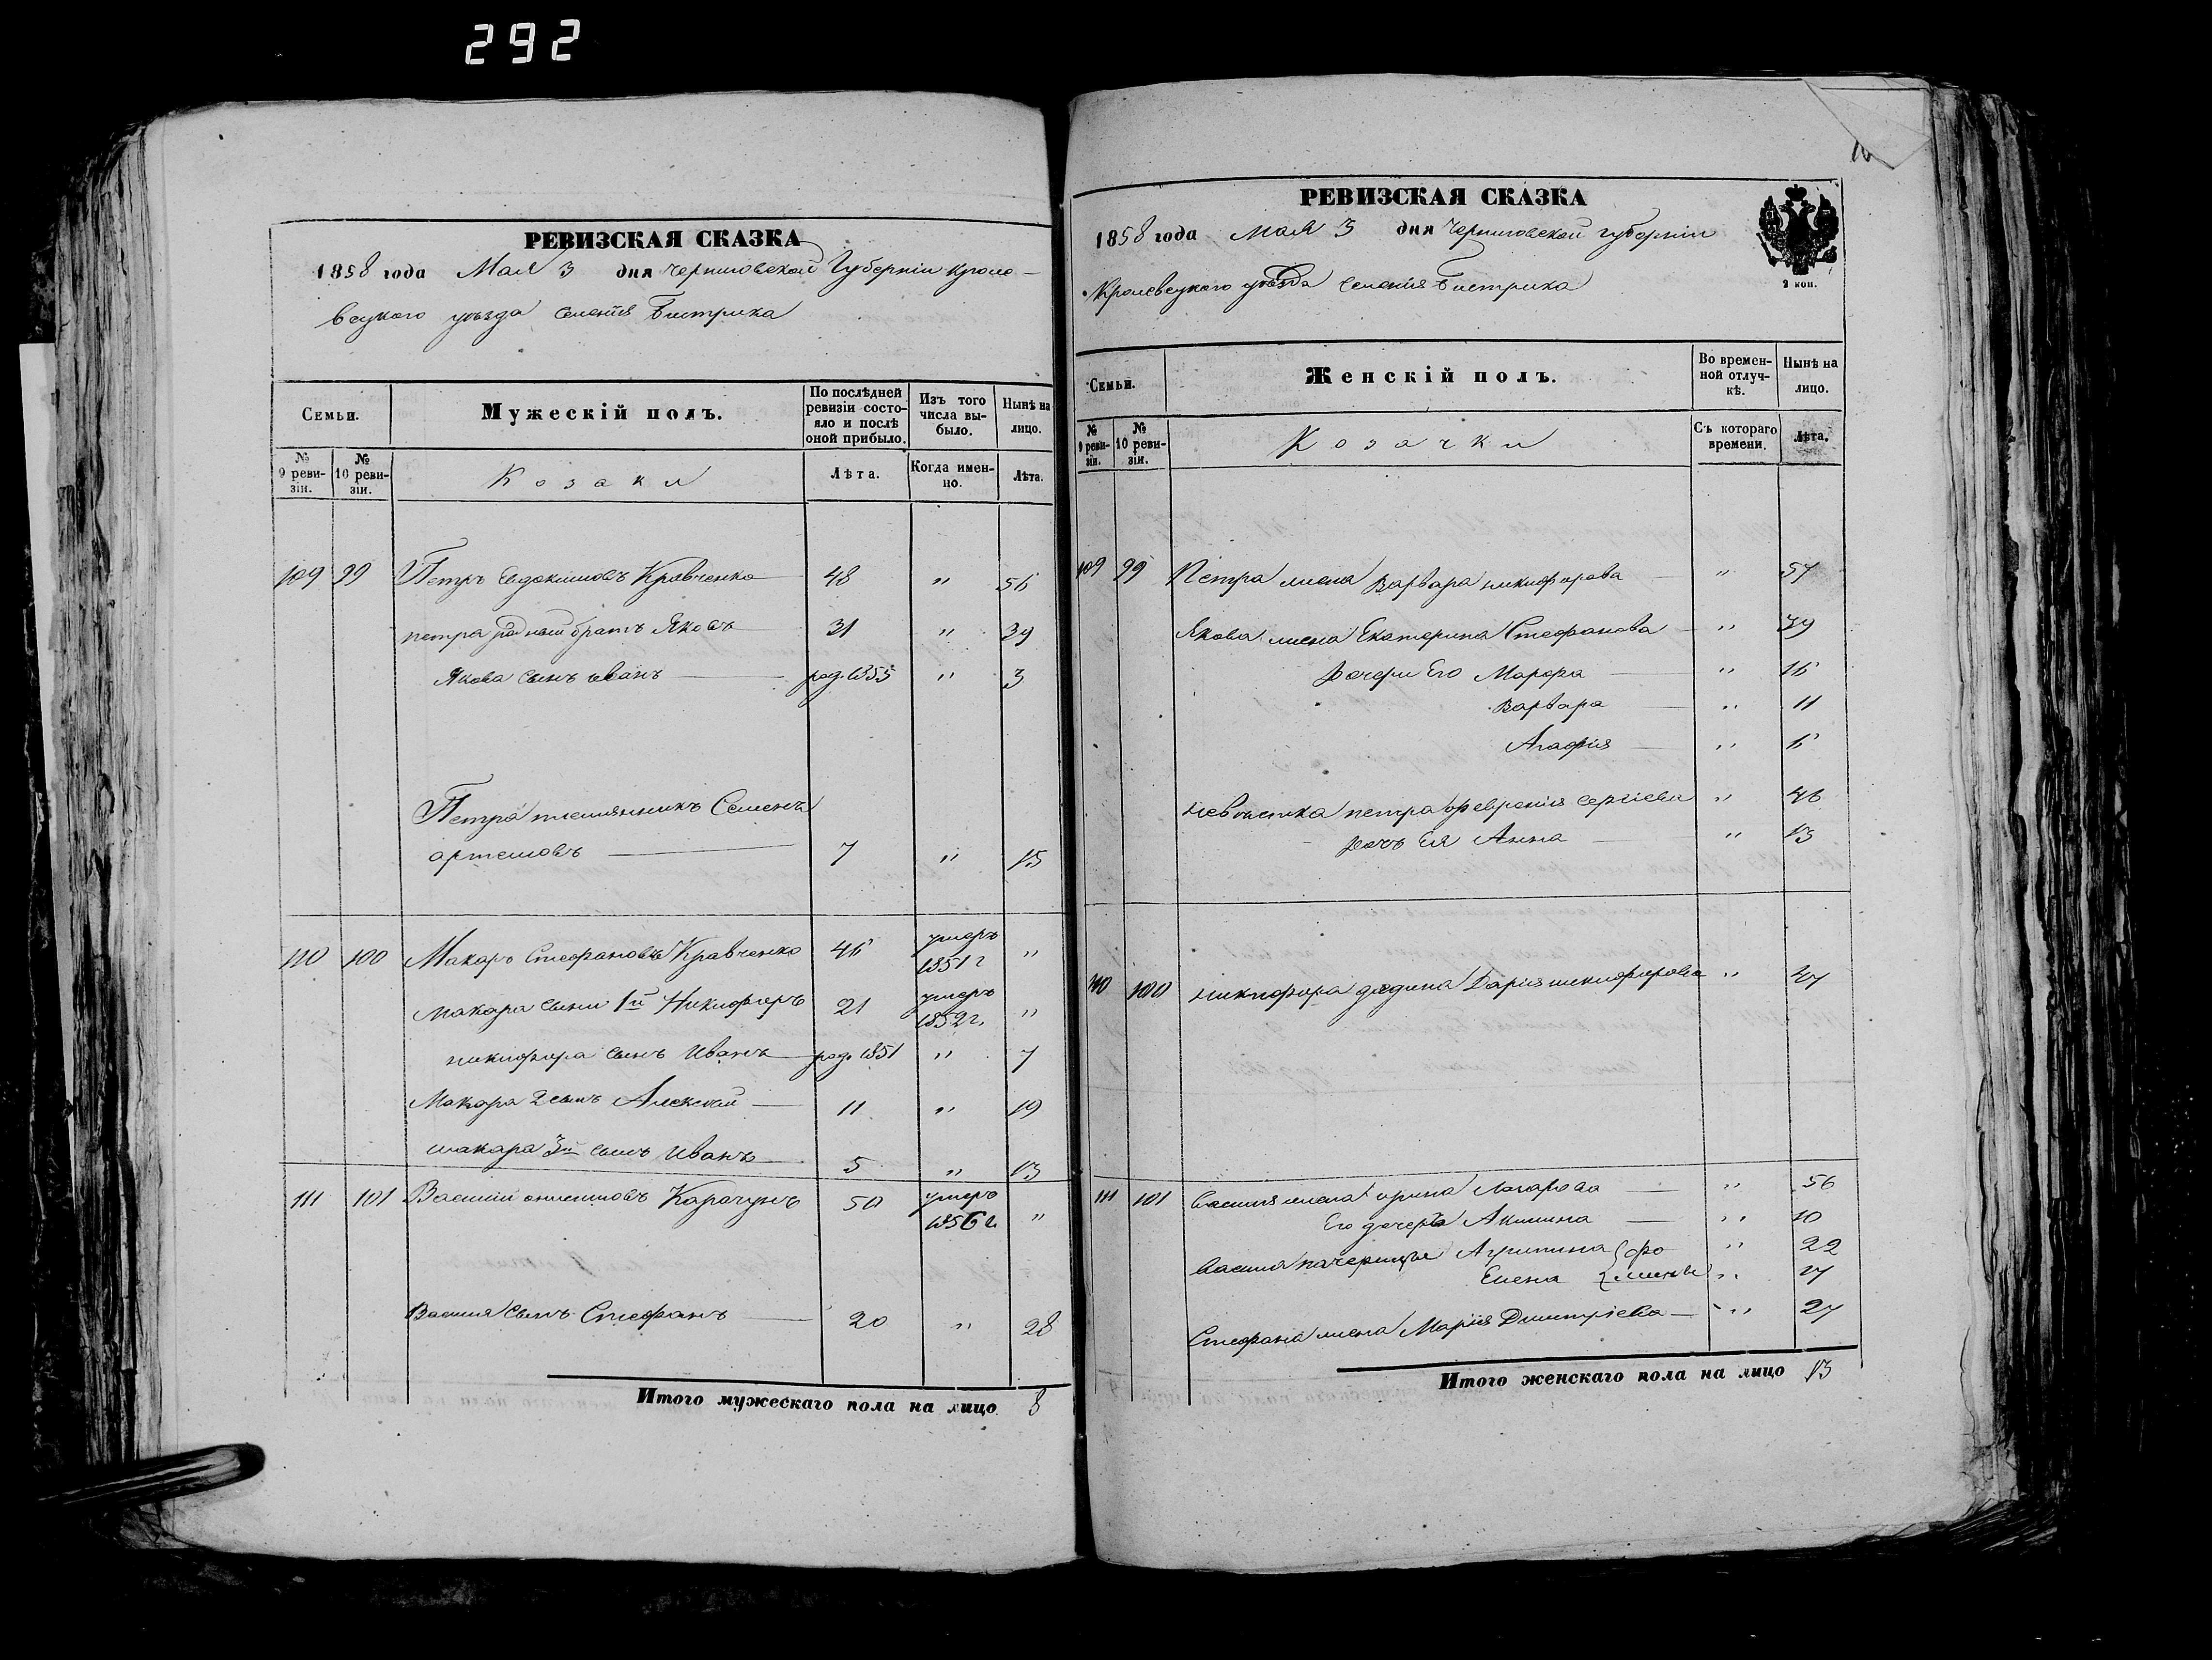 292
РЕВИЗСКАЯ СКАЗКА
1858 года Мая 3 дня Черниговской Губерніи Кроле-
вецкого уѣзда Селенія Бистрика
Семьи.
Мужескій полъ.
По послѣдней ревизіи состо-
яло и послѣ
оной прибыло.
Изъ того
числа вы-
было.
Нынѣ на
лицо.
№
9 реви-
зіи.
№
10 реви-
зіи.
Козаки
Лѣта.
Когда имен-
но.
Лѣта.
109 99 Петръ Евдокимовъ Кравченко 48 " 56
петра родный братъ Яковъ 31 " 39
Якова сынъ иванъ род. 1855 " 3
Петра племянникъ Семенъ
артемовъ 7 " 15
110 100 Макаръ Стефановъ Кравченко 46 умеръ 1851 г "
макара сыни 1й Никифоръ 21 умеръ 1852 г. "
никифора сынъ Иванъ род. 1851 " 7
Макара 2 сынъ Алексѣй 11 " 19
макара 3й сынъ Иванъ 5 " 13
111 101 Василий онисимовъ Карачунъ 50 умеръ 1856 г "
Василя сынъ Стефанъ 20 " 28
Итого мужескаго пола на лицо 8
РЕВИЗСКАЯ СКАЗКА
1858 года Мая 3 дня Черниговской губерніи
Кролевецкого уѣзда селенія Бистрика
2 коп.
Семьи.
Женскій полъ.
Во времен-
ной отлуч-
кѣ.
Нынѣ на
лицо.
№
9 реви-
зіи.
№
10 реви-
зіи.
Козачки
Съ котораго
времени.
Лѣта.
109 99 Петра жена Варвара никифорова " 57
Якова жена Екатерина Стефанова " 39
Дочери Его Марфа " 16
Варвара " 11
Агафія " 6
невѣстка петра Февронія Сергіева " 46
дочь Ея Анна " 13
110 100 никифора вдова Дарія никифорова " 27
111 101 Василя жена ирина Лазарова " 56
Его дочерь Акилина " 10
Василя пачерицы Агрипина " 22
Елена " 17
Стефана жена Марія Дмитріева " 27
Итого женскаго пола на лицо 13